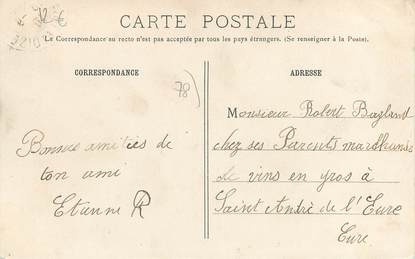 CARTE POSTALE
Le Correspondance au recto n'est pas acceptée par tous les pays étrangers. (Se renseigner à la Poste).
CORRESPONDANCE
ADRESSE
78
Bonnes amitiés de
ton ami
Etienne R
Monsieur Robert
chez ses Parents marchands
de vins en gros à
Saint André de l'Eure
Eure